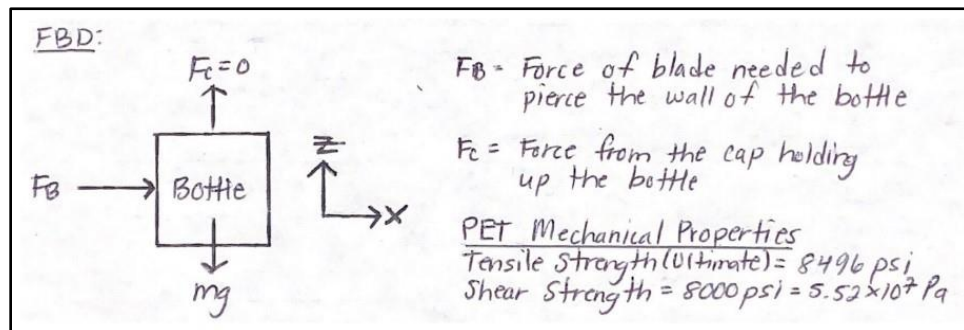 FBD:
Fc=0
FB
Bottle
Z
X
mg
FB - Force of blade needed to
pierce the wall of the bottle
Fc = Force from the cap holding
up the bottle
PET Mechanical Properties
Tensile Strength (Ultimate) = 8496 psi
Shear Strength = 8000 psi = 5.52x10⁷ Pa